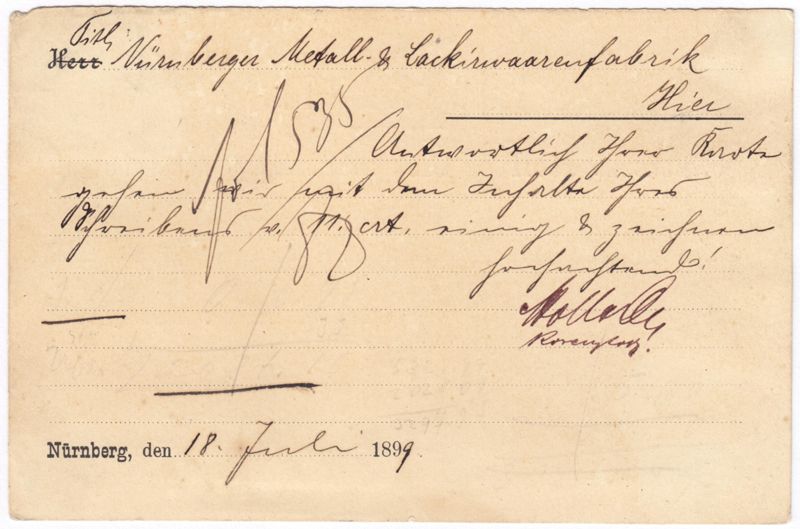 Titl.
Herr Nürnberger Metall- & Lackirwaarenfabrik
Hier
Antwortlich Ihrer Karte
gehen wir mit dem Inhalte Ihres
Schreibens v. 11. crt. einig & zeichnen
hochachtend!
Nürnberg, den 18. Juli 1899.